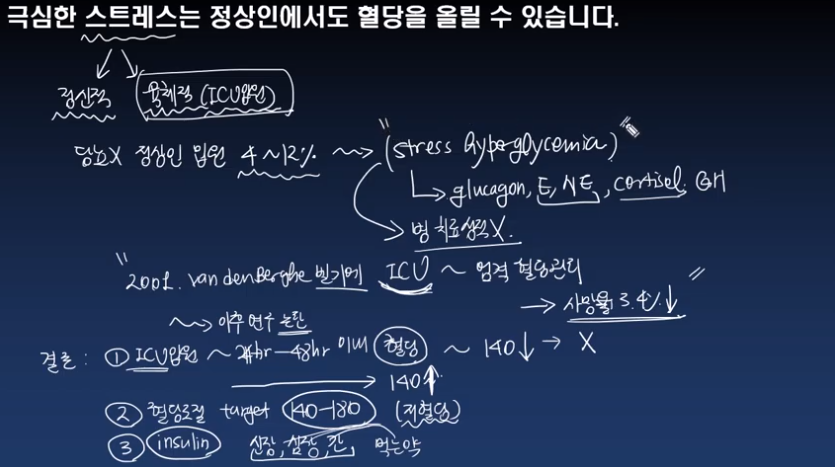 극심한 스트레스는 정상인에서도 혈당을 올릴 수 있습니다.
정신적 육체적 (ICU입원)
당뇨X 정상인 입원 4~12% "(stress hyperglycemia)"
glucagon, E, NE, cortisol. GH
병 치료성적X.
"2001. van den Berghe 벨기에 ICU ~ 엄격 혈당관리
→ 사망률 3.4%↓ "
이후 연구 논란
결론: ① ICU입원 ~ 24hr-48hr 이내 혈당 ~ 140↓ → X
→ 140↑
② 혈당조절 target 140-180 (저혈당)
③ insulin 신장, 심장, 간, 먹는약